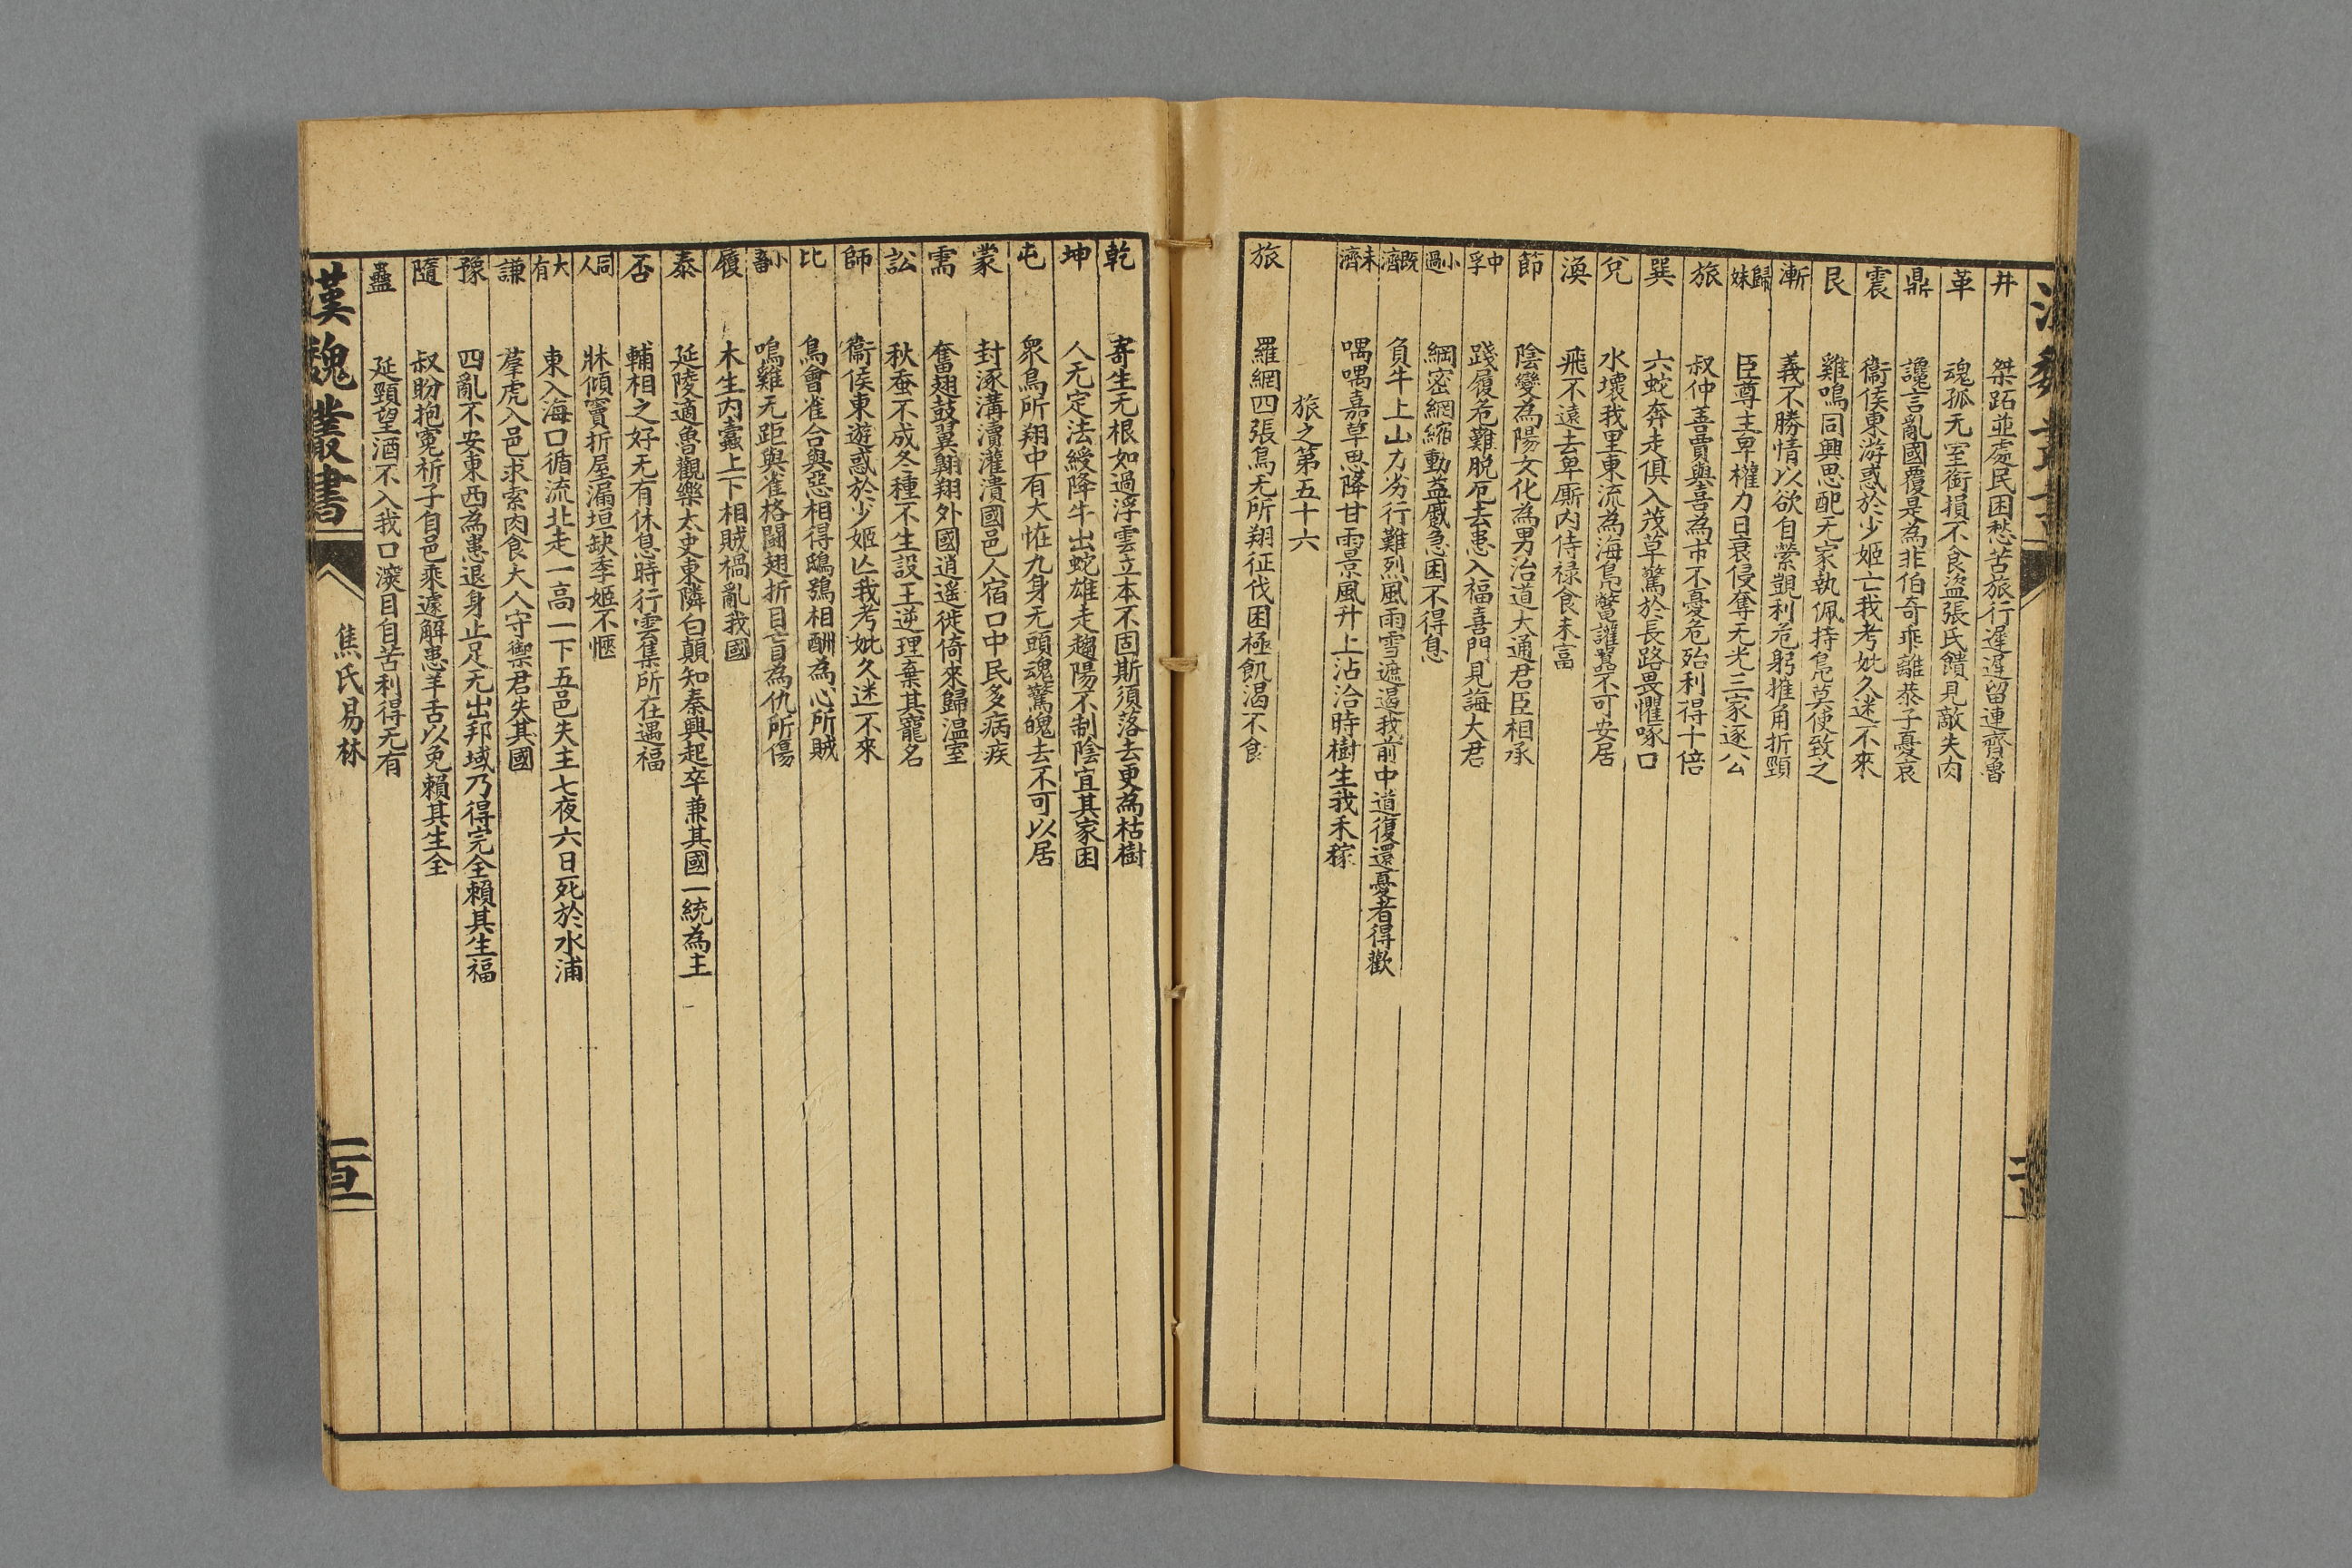 井　桀跖並處民困愁苦旅行遲遲留連齊魯
革　魂孤无室銜損不食盜張氏饋見敵失肉
鼎　讒言亂國覆是為非伯奇乖離恭子憂哀
震　衞侯東游惑於少姬亡我考妣久迷不來
艮　雞鳴同興思配无家執佩持鳧莫使致之
漸　義不勝情以欲自縈覬利危躬摧角折頸
歸妹　臣尊主卑權力日衰侵奪无光三家逐公
旅　叔仲善賈與喜為市不憂危殆利得十倍
巽　六蛇奔走俱入茂草驚於長路畏懼啄口
兌　水壞我里東流為海鳧鶩讙囂不可安居
渙　飛不遠去卑廝内侍禄食未富
節　陰變為陽女化為男治道大通君臣相承
中孚　踐履危難脱厄去患入福喜門見誨大君
小過　網密網縮動益蹙急困不得息
既濟　負牛上山力劣行難烈風雨雪遮遏我前中道復還憂者得歡
未濟　喁喁嘉草思降甘雨景風升上沾洽時樹生我禾稼
旅之第五十六
旅　羅網四張鳥无所翔征伐困極飢渴不食
乾　寄生无根如過浮雲立本不固斯須落去更為枯樹
坤　人无定法綬降牛出蛇雄走趨陽不制陰宜其家困
屯　衆鳥所翔中有大怪九身无頭魂驚魄去不可以居
蒙　封涿溝瀆灌潰國邑人宿口中民多病疾
需　奮翅鼓翼翺翔外國逍遥徙倚來歸温室
訟　秋蚕不成冬種不生設王逆理棄其寵名
師　衞侯東遊惑於少姬亾我考妣久迷不來
比　鳥會雀合與惡相得鴟鴞相酬為心所賊
小畜　鳴雞无距與雀格鬪翅折目盲為仇所傷
履　木生内蠹上下相賊禍亂我國
泰　延陵適魯觀樂太史東隣白顛知秦興起卒兼其國一統為主
否　輔相之好无有休息時行雲集所在遇福
同人　牀傾簀折屋漏垣缺季姬不愜
大有　東入海口循流北走一高一下五邑失主七夜六日死於水浦
謙　羣虎入邑求索肉食大人守禦君失其國
豫　四亂不安東西為患退身止足无出邦域乃得完全賴其生福
隨　叔盼抱寃祈子自邑乘遽解患羊舌以免賴其生全
蠱　延頸望酒不入我口深目自苦利得无有
漢魏叢書　焦氏易林